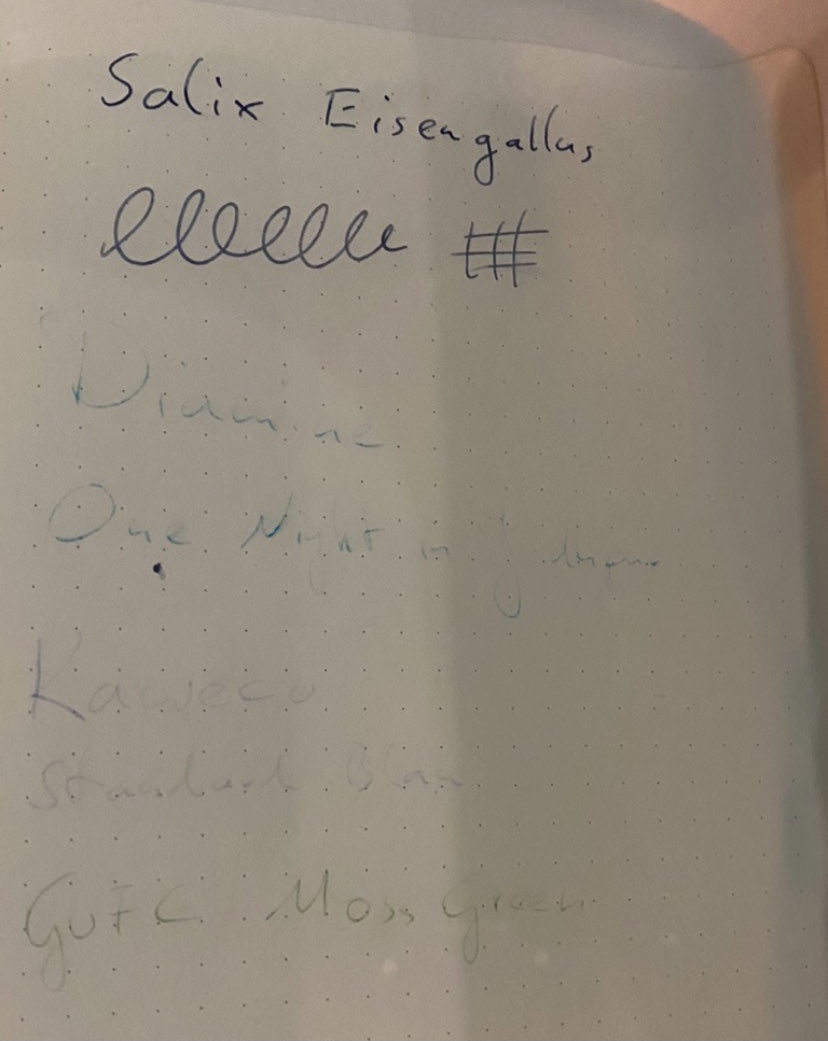 Salix Eisengallus
Diamine
One Night in
Kaweco
Standard Blau
GvFC Moss Green